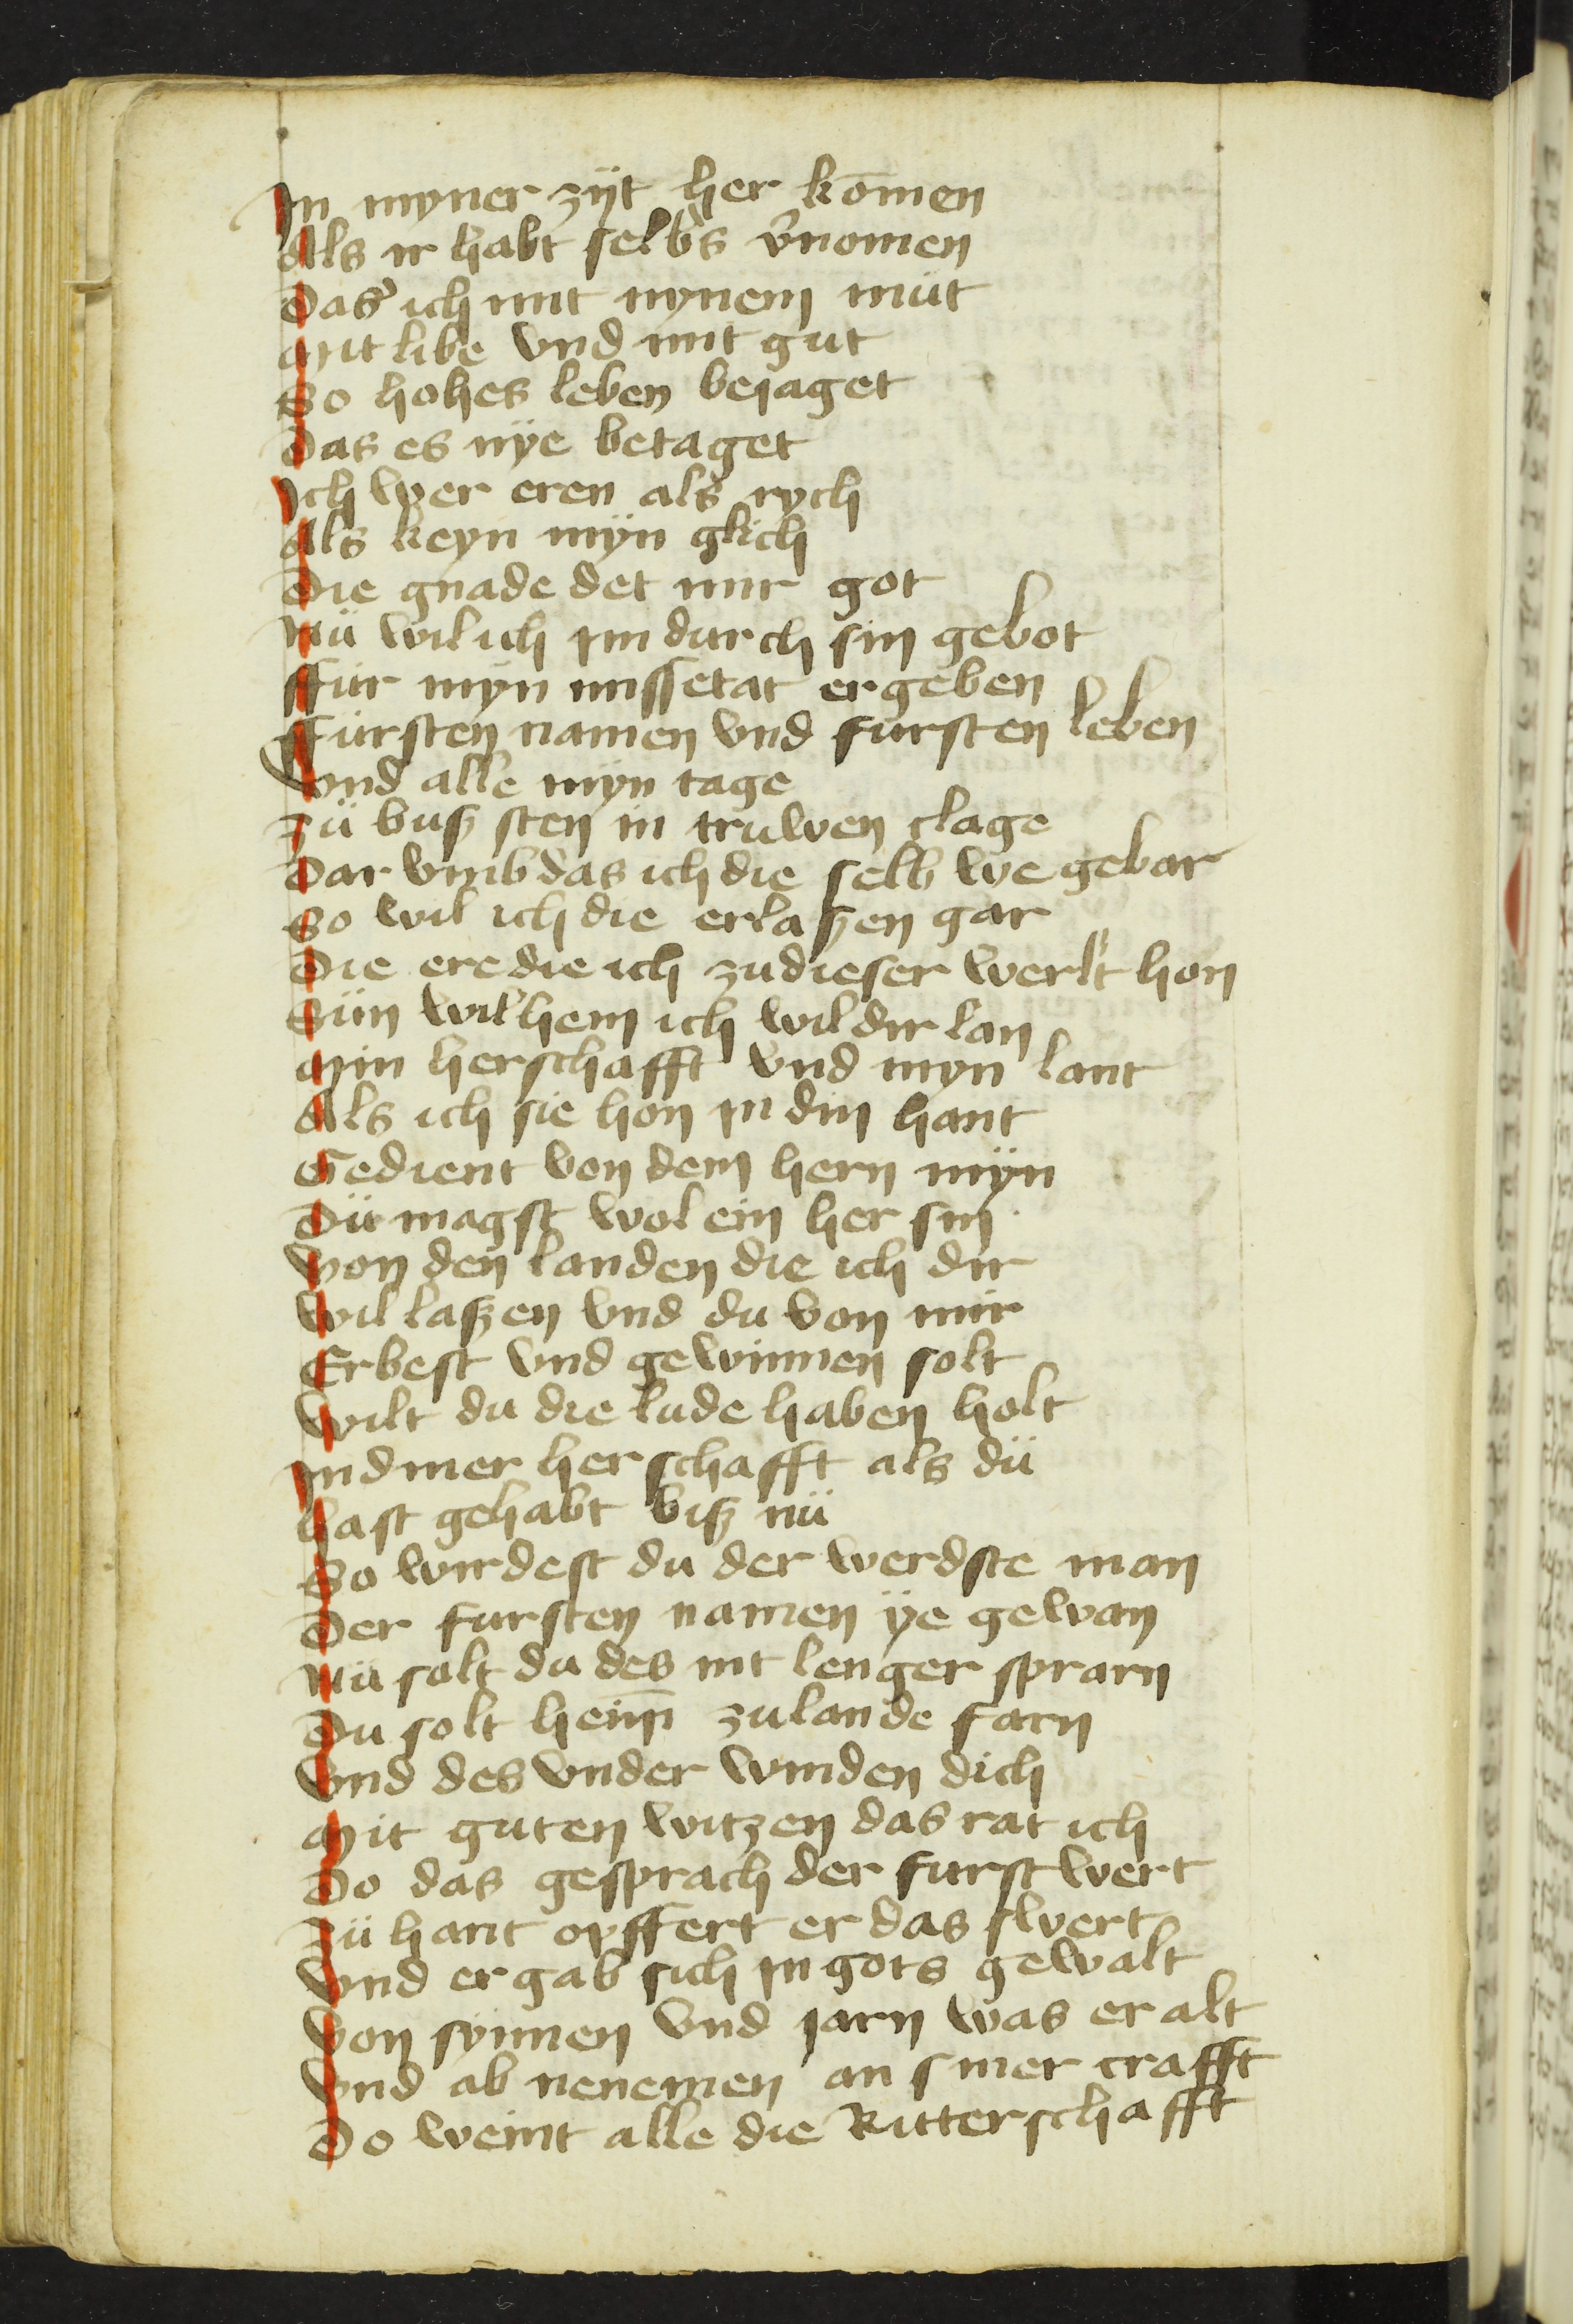 In myner zijt her komen
Als ir habt selb's v̉nomen
Das ich mit mynem müt
Mit libe vnd mit gut
So hohes leben bejaget
Das es nÿe betaget
Ich wer eren als rych
Als keyn mÿn glich
Die gnade det mir got
Nü wil ich im durch sin gebot
Ffür mÿn missetat ergeben
Ffürsten namen vnd fursten leben
Vnd alle mÿn tage
Zü buß sten in truwen clage
Dar vmb das ich die selb we gebar
So wil ich die erlaßen gar
Die ere die ich zu dieser werlt hon
Sün wilhem ich wil dir lan
Min herschafft vnd myn lant
Als ich sie hon in din hant
Gedient von dem hern mÿn
Dü magst wol ein her sin
Von den landen die ich dir
Wil laßen vnd du von mir
Erbest vnd gewinnen solt
Wilt du die lude haben holt
Ind mer herschafft als dü
Hast gehabt biß nü
So wirdest du der werdste man
Der fursten namen ÿe gewan
Nü salt du des nit lenger sprarn
Du solt heim̄ zu lande farn
Vnd des vnder winden dich
Mit guten witzen das rat ich
Do das gesprach der furst wert
Zü hant opffert er das swert
Vnd er gab sich in gots gewalt
Von sÿnnen vnd jarn was er alt
Vnd ab nenemen an siner crafft
Do weint alle die Ritterschafft